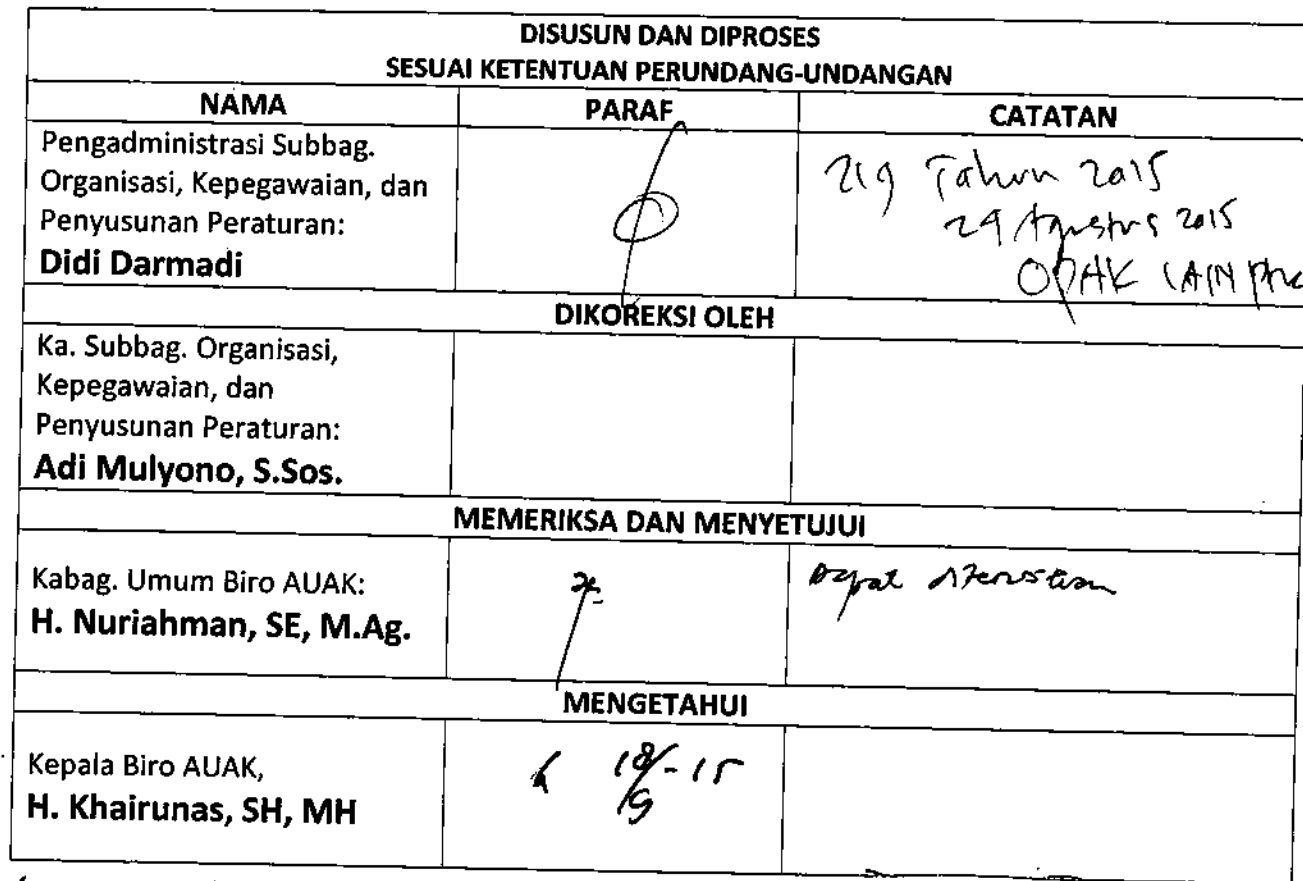 DISUSUN DAN DIPROSES
SESUAI KETENTUAN PERUNDANG-UNDANGAN
NAMA PARAF CATATAN
Pengadministrasi Subbag.
Organisasi, Kepegawaian, dan
Penyusunan Peraturan:
Didi Darmadi
219 Tahun 2015
29 Agustus 2015
OPAK IAIN
DIKOREKSI OLEH
Ka. Subbag. Organisasi,
Kepegawaian, dan
Penyusunan Peraturan:
Adi Mulyono, S.Sos.
MEMERIKSA DAN MENYETUJUI
Kabag. Umum Biro AUAK:
H. Nuriahman, SE, M.Ag.
Dapat
MENGETAHUI
Kepala Biro AUAK,
H. Khairunas, SH, MH
18/9-15